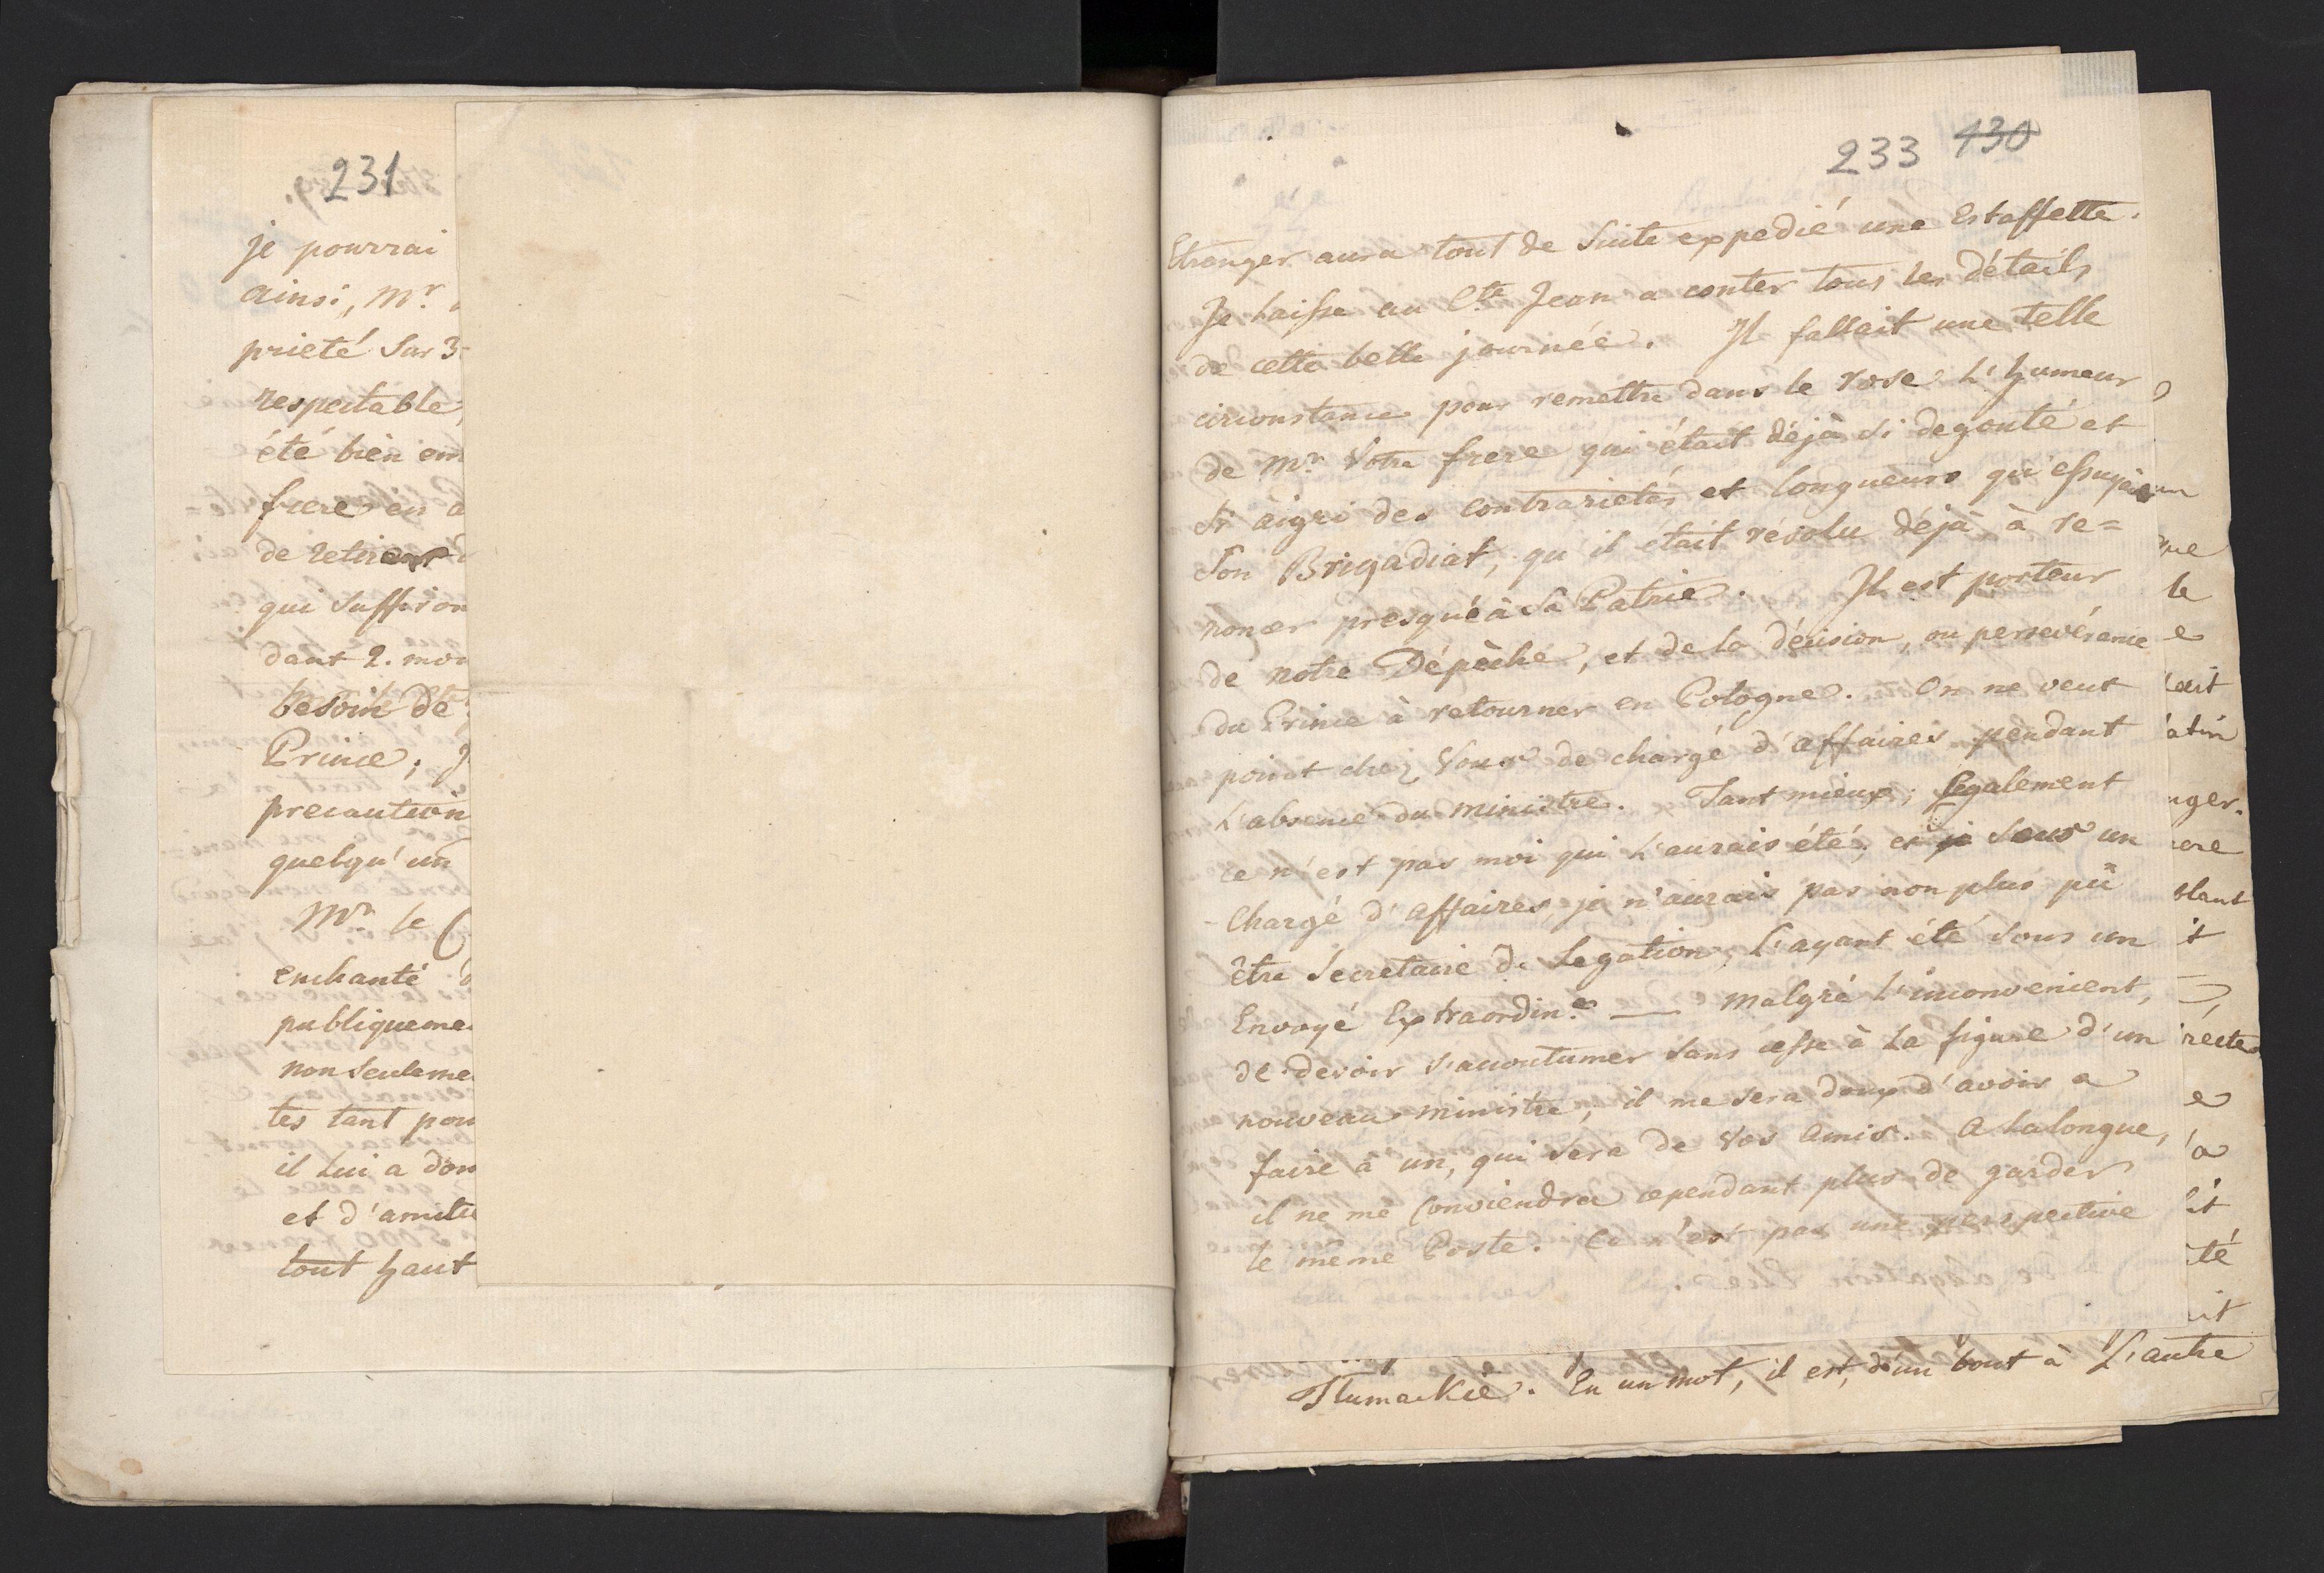 231
je pourrai
ainsi, Mr.
prieté Sur 3
respectable
été bien em
frere en a
de retirer
qui Suffiron
dant 2. mo
besoin de
Prince, j
precaution
quelqu'un
Mr le C
enchanté d
publiqueme
non Seuleme
tes tant pou
il Lui a don
et d'amitie
tout haut
233 430
Etranger aura tout de Suite expedié une Estaffette.
Je Laisse au Cte Jean a conter tous les détails
de cette belle journée. Il fallait une telle
circonstance pour remettre dans le rose L'humeur
de Mr. Votre frere qui était déjà Si degouté et
Si aigri des contrarietés et longueurs qu'essuyait
Son Brigadiat, qu'il était résolu déjà à re=
noncer presqué à Sa Patrie. Il est porteur
de notre Dépèche, et de la décision, ou persevérance
du Prince à retourner en Pologne. On ne veut
point chez Vous de chargé d'affaires pendant
L'absence du Ministre. Tant mieux; Egalement
ce n'est pas moi qui L'aurais été, et Sous un
Chargé d'affaires, je n'aurais pas non plus pû
être Sécretaire de Legation, L'ayant été Sous un
Envoyé Extraordin.e — Malgré L'inconvenient,
de devoir S'accoutumer Sans cesse à La figure d'un
nouveau Ministre, il me Sera doux d'avoir a
faire à un, qui Sera de Vos Amis. A La longue,
il ne me Conviendra cependant plus de garder
le même Poste. Ce n'est pas une perspective
Tlumackie. En un mot, il est, d'un bout à L'autre
le
e
lait
atin
nger.
blant
it
recte
e
a
it
té
it